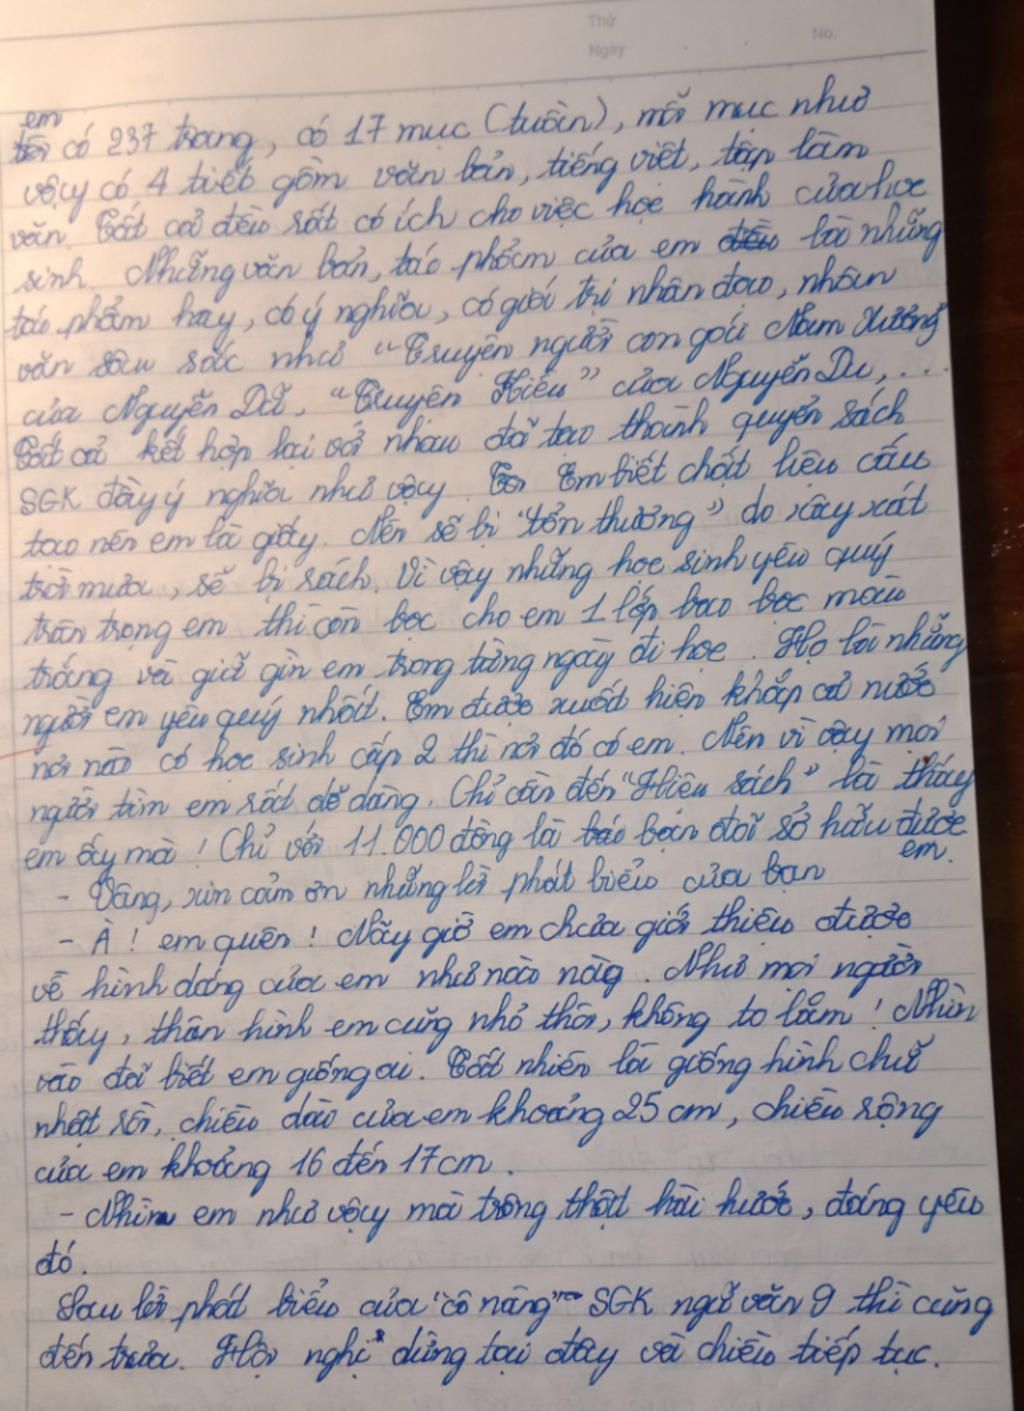 Thứ
Ngày
No.
em
có 237 trang, có 17 mục (tuần), mỗi mục như
vậy có 4 tiết gồm văn bản, tiếng việt, tập làm
văn. Tất cả đều rất có ích cho việc học hành của học
sinh. Những văn bản, tác phẩm của em đều là những
tác phẩm hay, có ý nghĩa, có giới trị nhân đạo, nhân
văn sâu sắc như "Truyện người con gái Nam Xương"
của Nguyễn Dữ, "Truyện Kiều" của Nguyễn Du, ...
Tất cả kết hợp lại với nhau đã tạo thành quyển sách
SGK đầy ý nghĩa như vậy. Em biết chất liệu cấu
tạo nên em là giấy. Nên sẽ bị "tổn thương" do xây xát
trời mưa, sẽ bị rách. Vì vậy những học sinh yêu quý
trân trọng em thì còn bọc cho em 1 lớp bao bọc màu
trắng và giữ gìn em trong từng ngày đi học. Họ là những
người em yêu quý nhất. Em được xuất hiện khắp cả nước
nơi nào có học sinh cấp 2 thì nơi đó có em. Nên vì vậy mọi
người tìm em rất dễ dàng. Chỉ cần đến "Hiệu sách" là thấy
em ấy mà! Chỉ với 11.000 đồng là bạn đã sở hữu được
em.
- Vâng, xin cảm ơn những lời phát biểu của bạn
- À! em quên! Nãy giờ em chưa giới thiệu được
về hình dáng của em như nào này. Như mọi người
thấy, thân hình em cũng nhỏ thôi, không to lắm! Nhìn
vào đã biết em giống ai. Tất nhiên là giống hình chữ
nhật rồi, chiều dài của em khoảng 25 cm, chiều rộng
của em khoảng 16 đến 17cm.
- Nhìn em như vậy mà trông thật hài hước, đáng yêu
đó.
Sau lời phát biểu của "cô nàng" SGK ngữ văn 9 thì cũng
đến trưa. Hội nghị dừng tại đây và chiều tiếp tục.